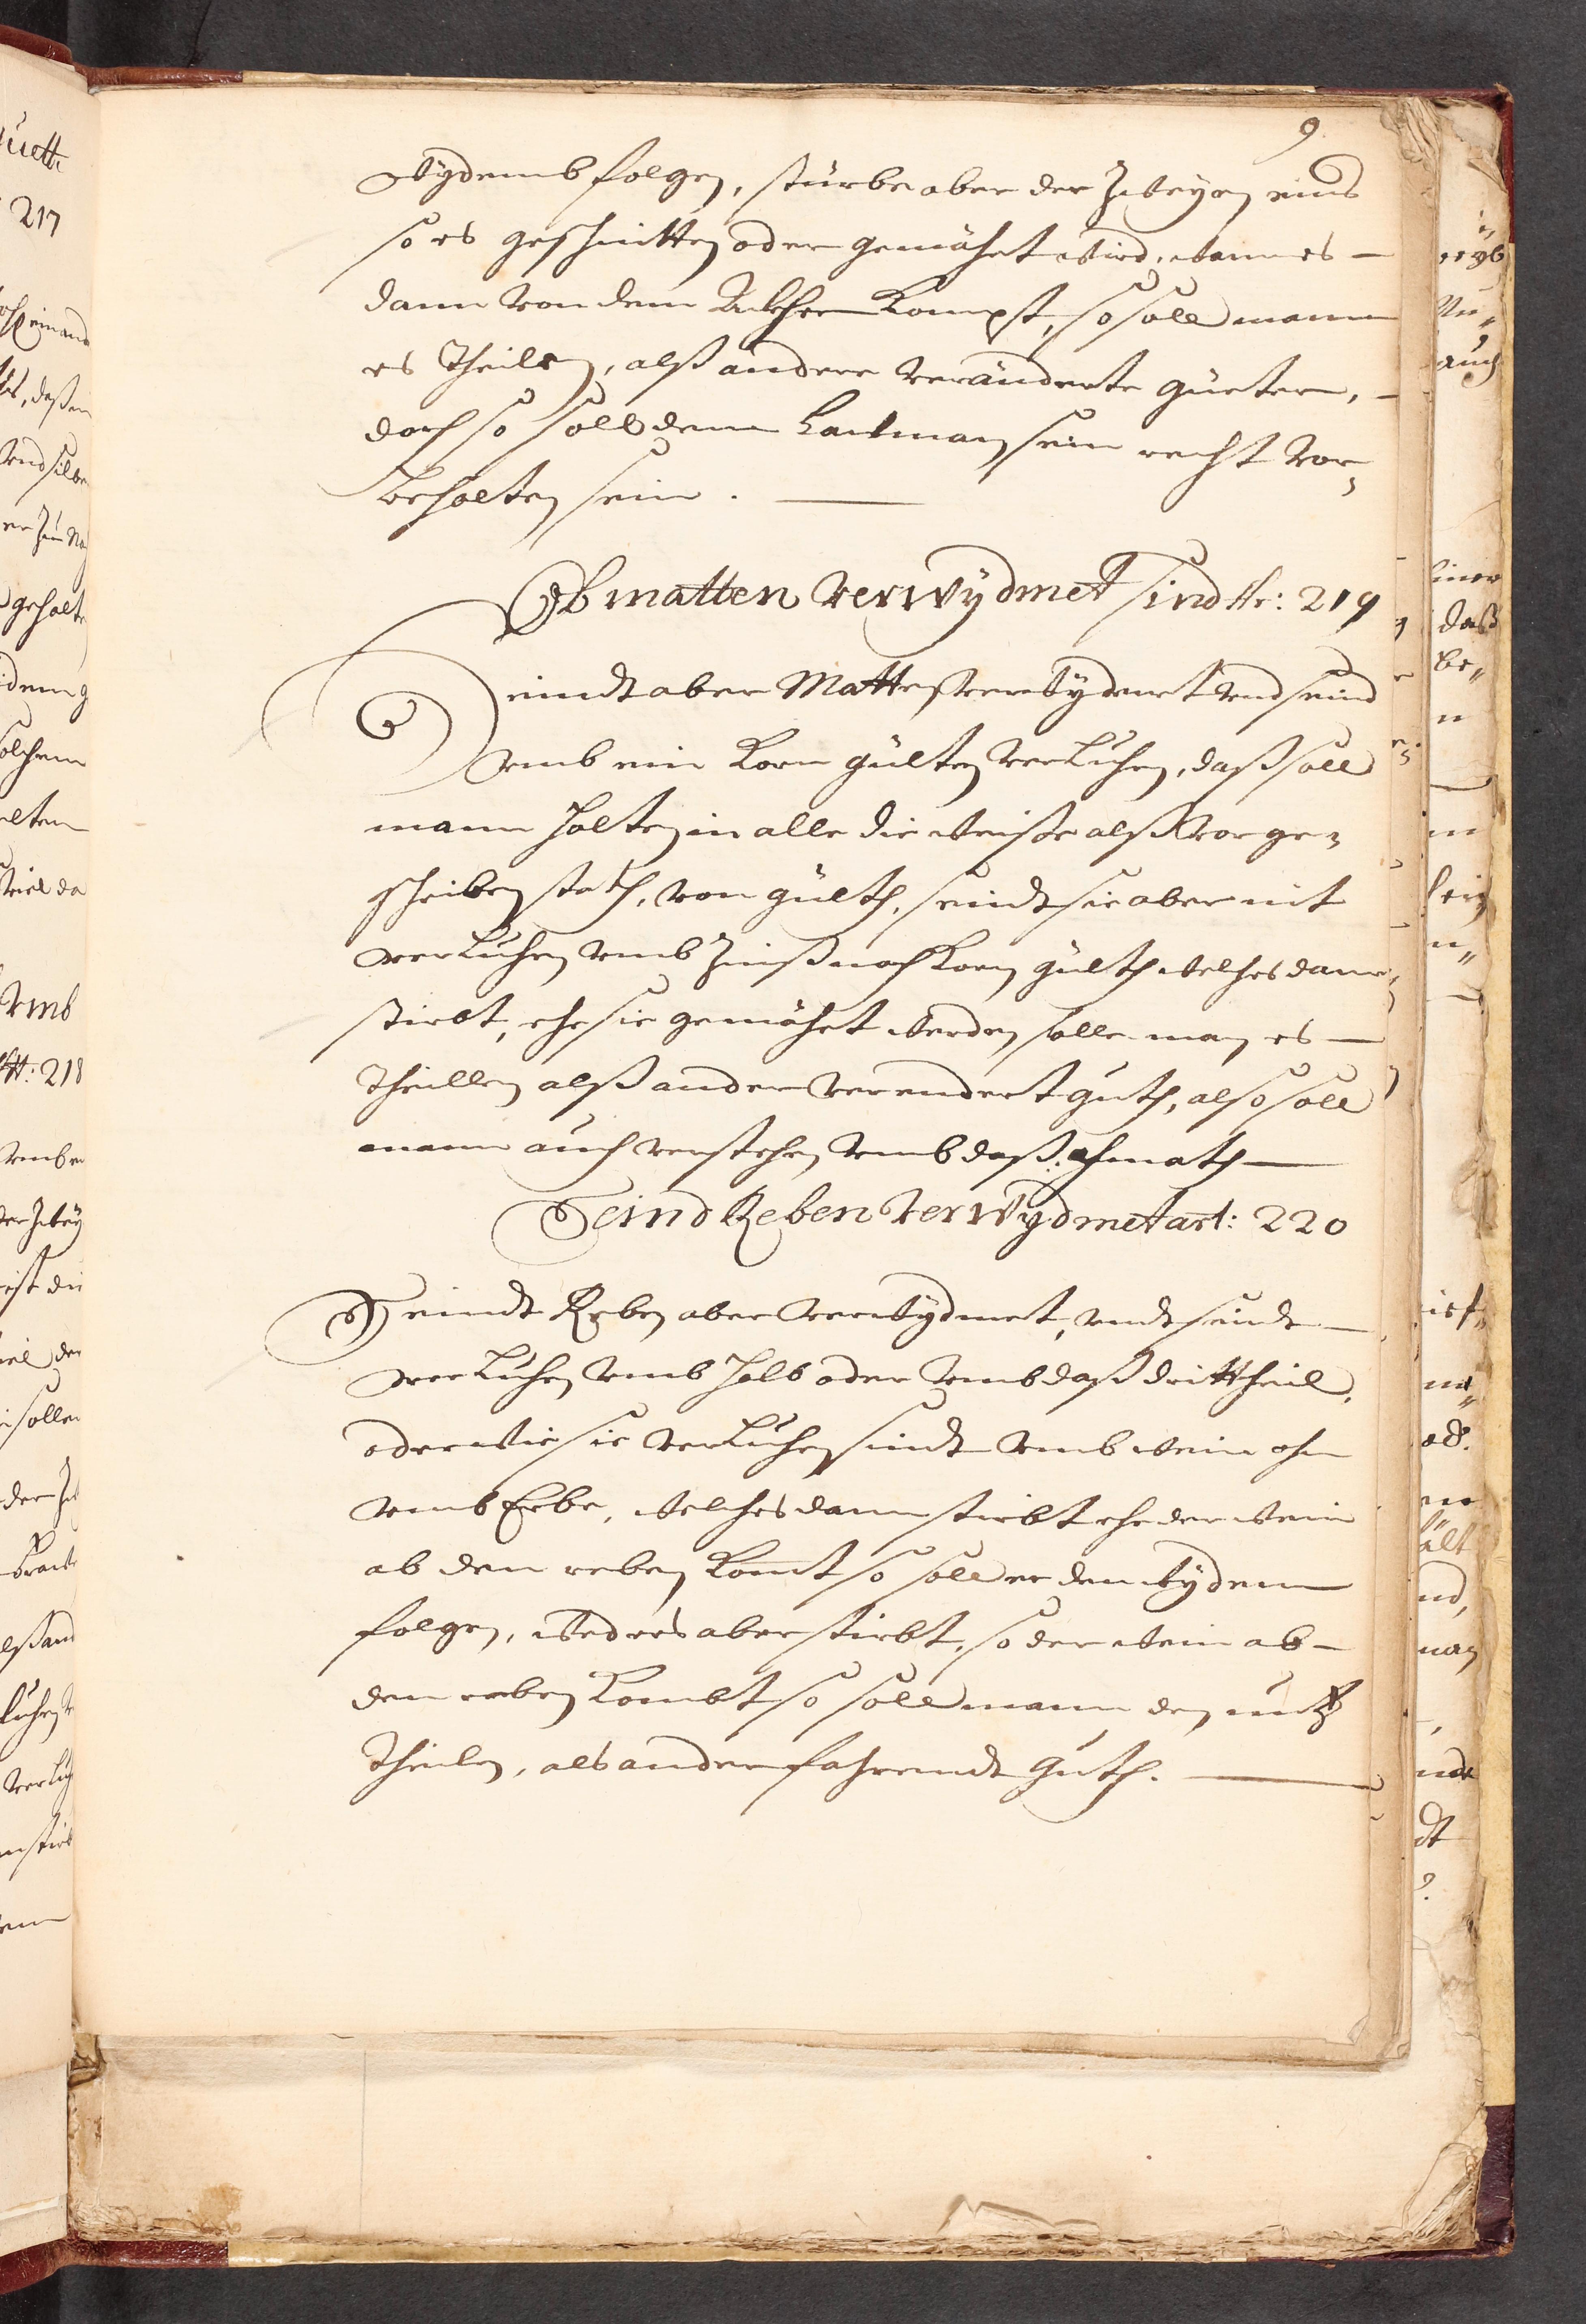 9.
Wydemb folgen, stürbe aber der Zweÿen eins
so es geschnitten oder gemähet wird, wann es –
dann von dem Ackher kompst, so soll mann
es theilen, alß andere veränderte güetter, –
doch so soll dem Bauman sein recht vor¬
behalten sein. —
Ob matten verwÿdmet sind Ar: 219
Seindt aber Matten verwÿdmet vnd seind
vmb ein Korn gülten verluhen, daß soll
mann halten in alle die weiße alß vor ge¬
schriben stath, von gülth, seindt sie aber nit
verluhen vmb Zinß noch Korn gülth welches dann
stirbt, ehe sie gemähet werden, solle man es –
theillen alß ander verendert guth, also soll
mann auch verstehen vmb daß ehmath —
Seind Reben verwÿdmet art: 220
Seindt Reben aber verwÿdmet, vndt seindt –
verluhen vmb halb oder vmb daß drittheil,
oder wie sie verluhen sindt vmb wein ohn
vmb Erbe, welches dann stirbt ehe der wein
ab den reben komt so soll er dem wÿdem
folgen, wedres aber stirbt, so der wein ab –
den reben kombt so soll mann den nutz
theilen, als ander fahrendt guth. —